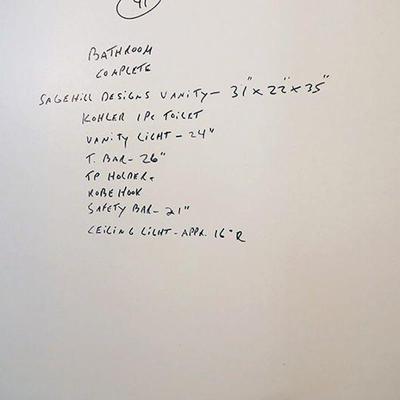 41
BATHROOM
COMPLETE
SAGEHILL DESIGNS VANITY - 31" x 22" x 35"
KOHLER 1PC TOILET
VANITY LIGHT - 24"
T. BAR - 26"
TP HOLDER
ROBE HOOK
SAFETY BAR - 21"
CEILING LIGHT - APPR. 16" R